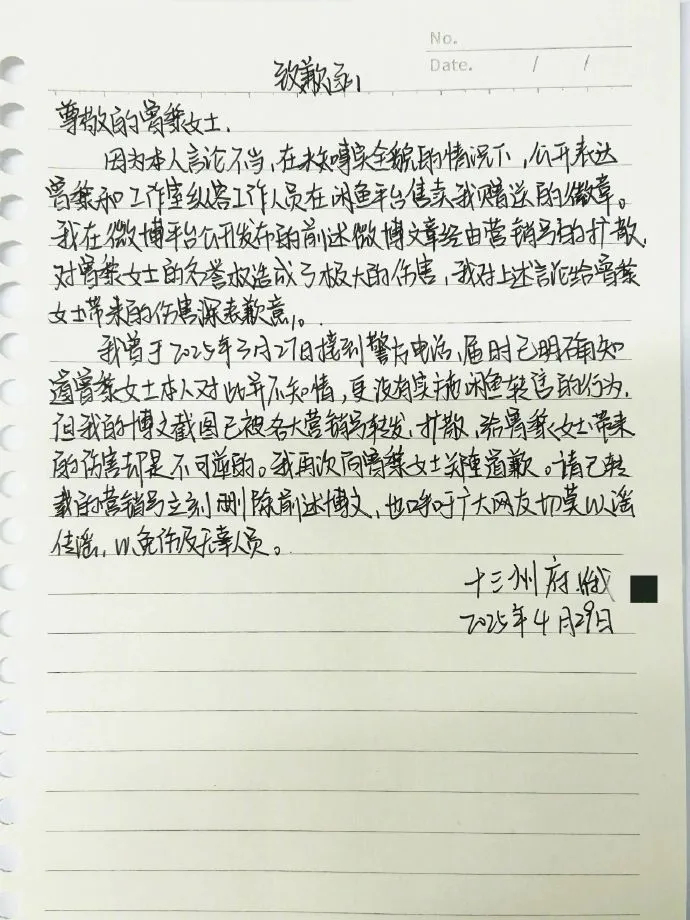 No.
Date. / /
致歉函
尊敬的曾黎女士.
因为本人言论不当,在未知事实全貌的情况下,公开表达
曾黎和工作室纵容工作人员在闲鱼平台售卖我赠送的徽章。
我在微博平台公开发布的前述微博文章经由营销号的扩散,
对曾黎女士的名誉权造成了极大的伤害,我对上述言论给曾黎
女士带来的伤害深表歉意。
我曾于2025年3月27日接到警方电话,届时已明确知
道曾黎女士本人对此并不知情,更没有实施闲鱼转售的行为,
但我的博文截图已被各大营销号转发、扩散,给曾黎女士带来
的伤害却是不可逆的。我再次向曾黎女士关陲道歉。请已转
载的营销号立刻删除前述博文,也呼吁广大网友切莫以谣
传谣,以免伤及无辜人员。
十三州府
2025年4月29日